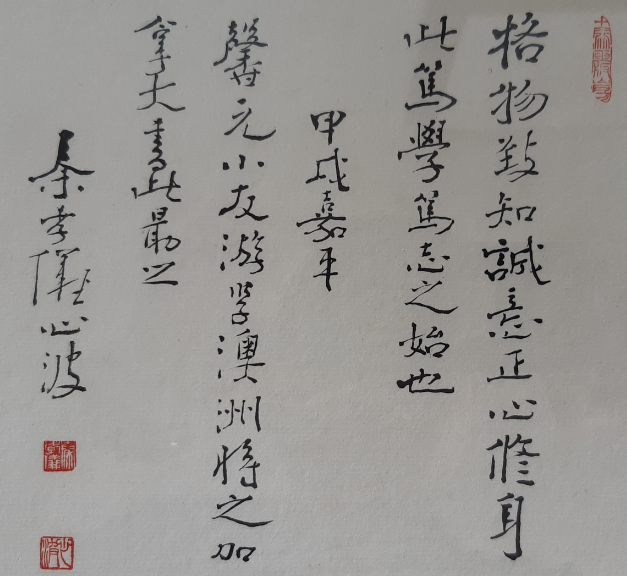 格物致知誠意正心修身
此篤學篤志之始也
甲戌嘉平
馨元小友游学澳洲將之加
拿大書此勗之
秦孝儀心波